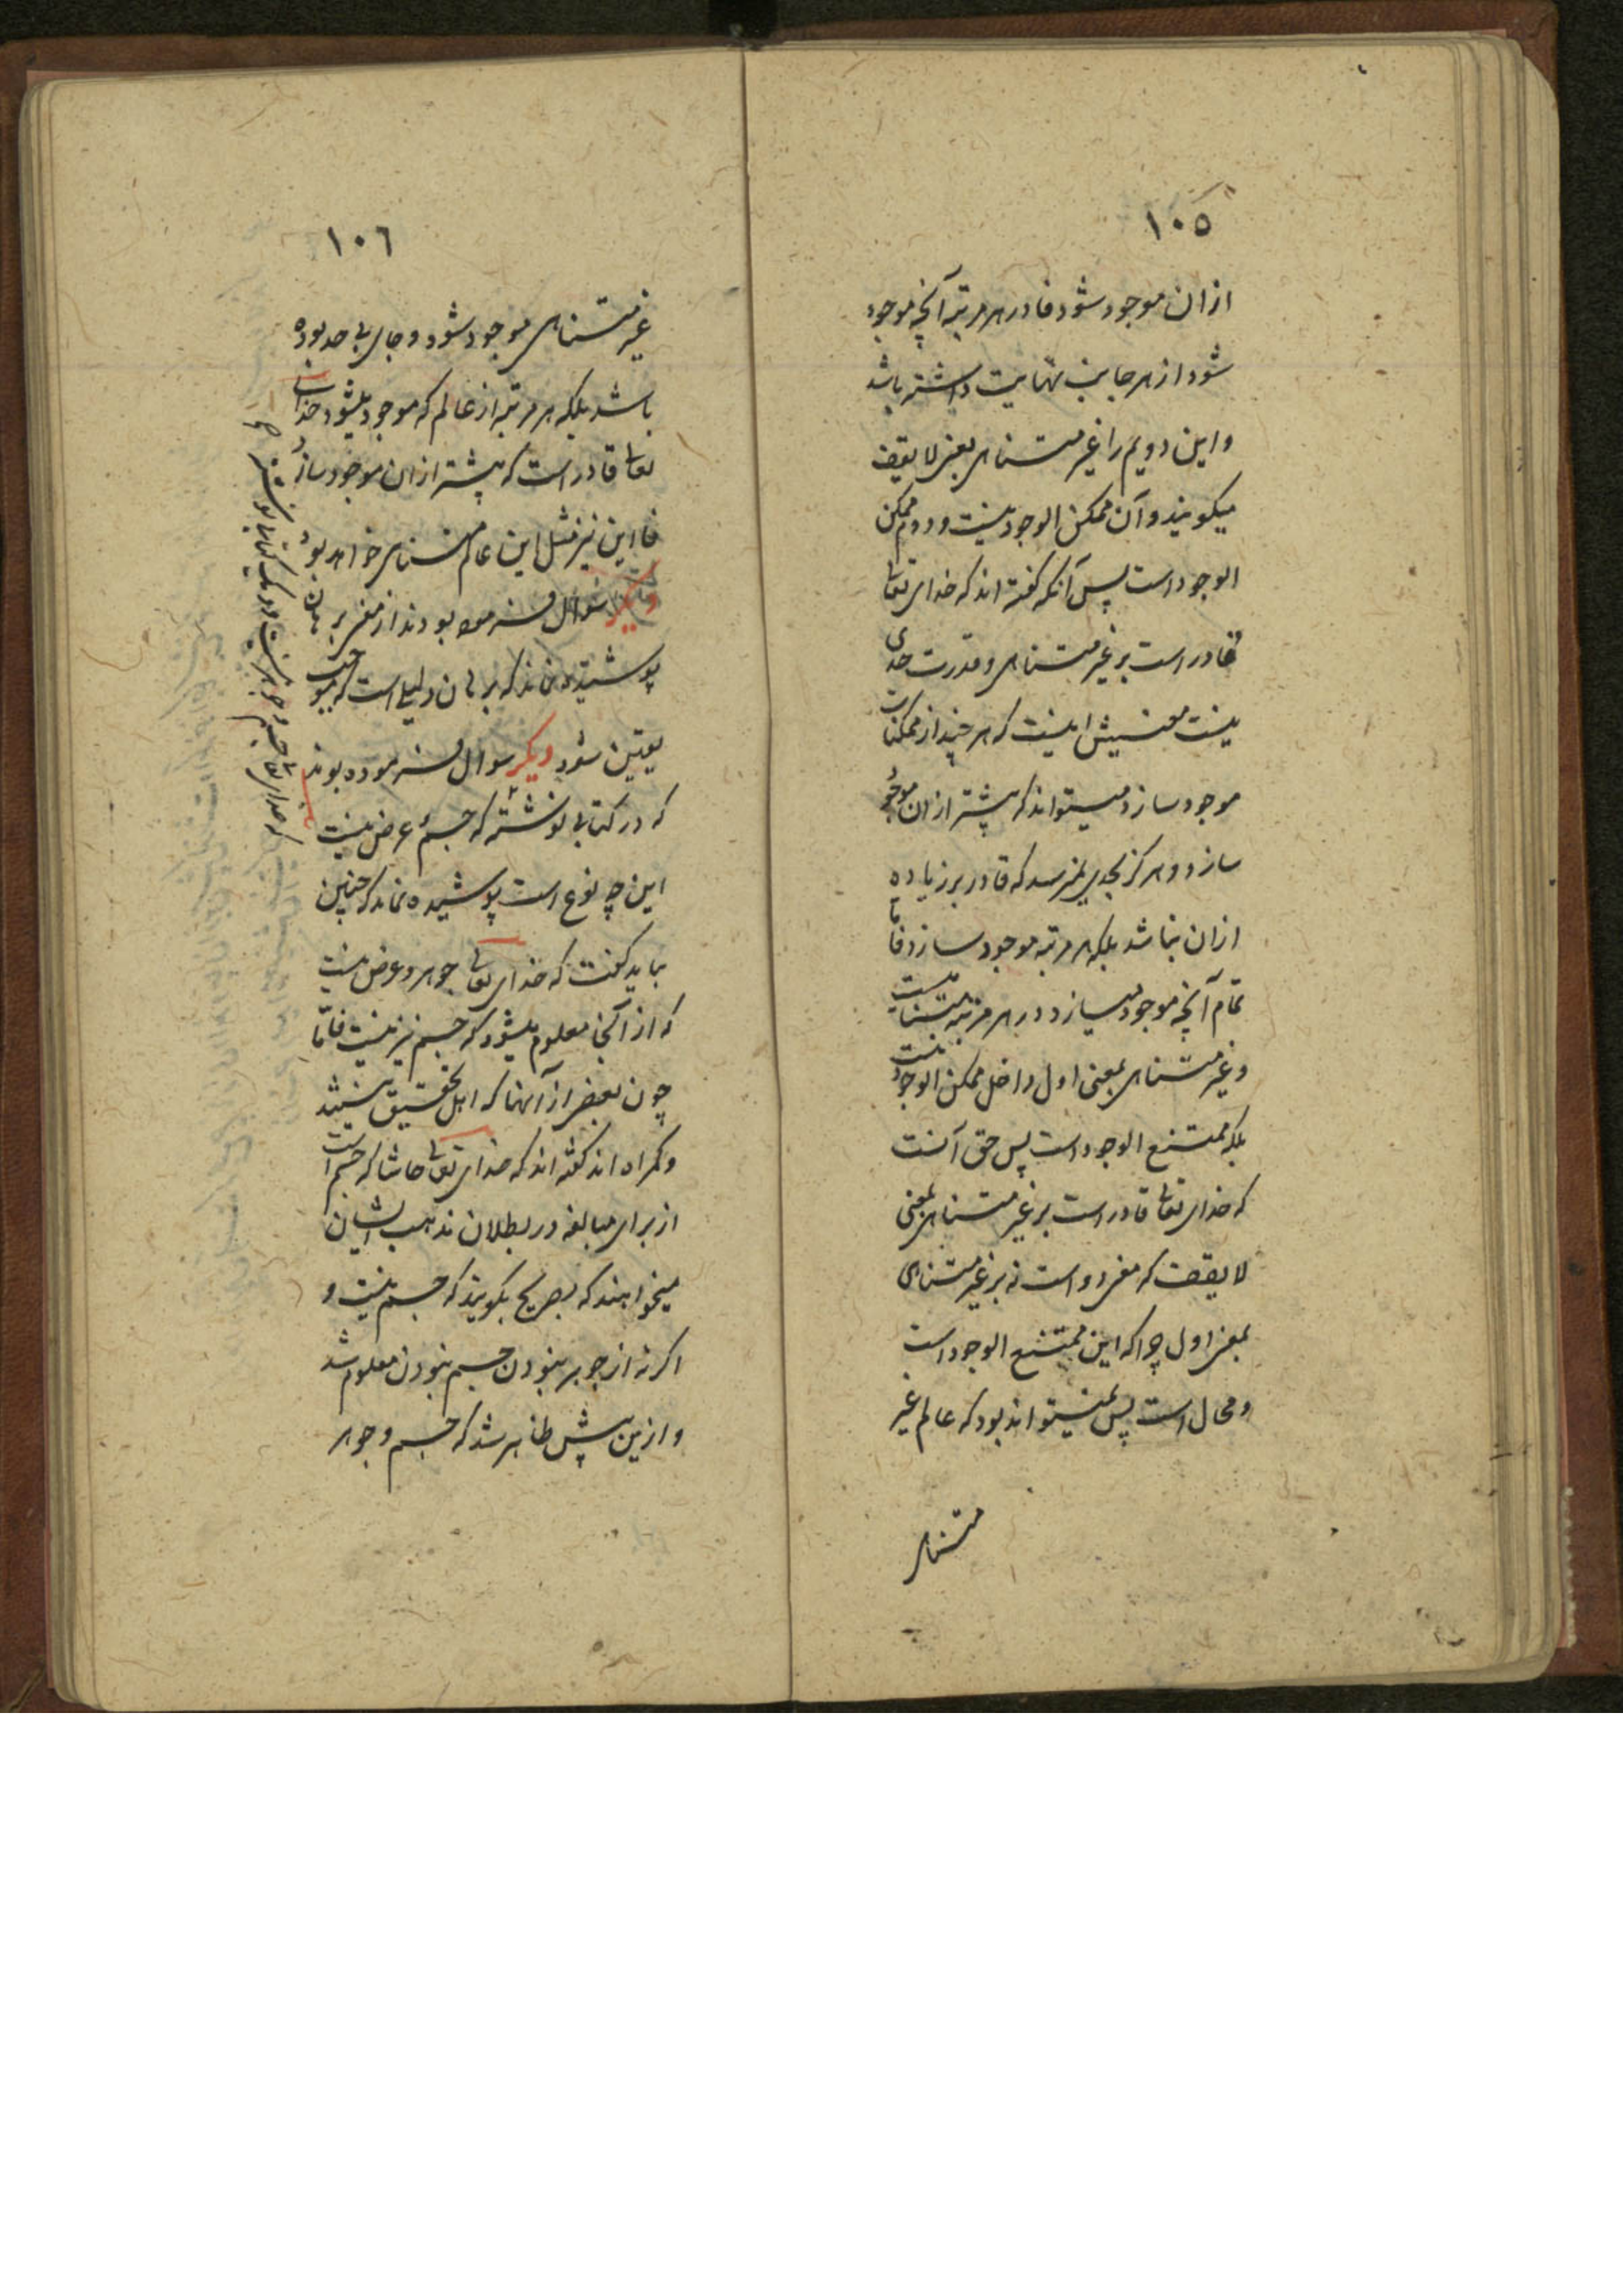 ۱۰۵
ازان موجود شود فا در هر مرتبه آنچه موجود
شود از هر جانب نهایت داشته باشد
و این دویم را غیر متناهی بمعنی لا یقف
میکویند و آن ممکن الوجود نیست و دوم ممکن
الوجود است پس آنکه کفته اند که خدای تعالی
قادر است بر غیر متناهی و قدرت حدی
نیست معنیش اینست که هر چند از ممکنات
موجود سازد میتواند که پیشتر ازان موجود
سازد و هرکز بحدی نمیرسد که قادر بر زیاده
ازان نباشد بلکه هر مرتبه موجود سازد فاما
تمام آنچه موجود میسازد در هر مرتبه متناهیست
و غیر متناهی بمعنی اول داخل ممکن الوجود نیست
بلکه ممتنع الوجود است پس حق آنست
که خدای تعالی قادر است بر غیر متناهی بمعنی
لا یقف که مغیر و است نه بر غیر متناهی
بمعنی اول چرا که این ممتنع الوجود است
و محال است پس نمیتواند بود که عالم غیر
متناهی
۱۰۶
غیر متناهی موجود شود و جای بی حد بوده
باشد بلکه هر مرتبه از عالم که موجود میشود خدای
تعالی قادر است که پیشتر ازان موجود سازد
فا این نیز مثل این عالم متناهی خواهد بود
دیکر سوال فرموده بودند از معنی برهان
پوشیده نماند که برهان دلیلی است که موجب
یقین شود دیکر سوال فرموده بودند
که در کتابی نوشته که جسم و عرض نیست
این چه نوع است پوشیده نماند که چنین
باید کفت که خدای تعالی جوهر و عرض نیست
که از آنجا معلوم میشود که جسم نیز نیست فاما
چون بعضی از آنها که اهل تحقیق نیستند
و کمراه اند کفته اند که خدای تعالی حاشا که جسم است
از برای مبالغه در بطلان مذهب ایشان
میخواهند که بصریح بکویند که جسم نیست و
اکر نه از جوهر نبودن جسم نبودن معلوم شد
و ازین پیش ظاهر شد که جسم و جوهر